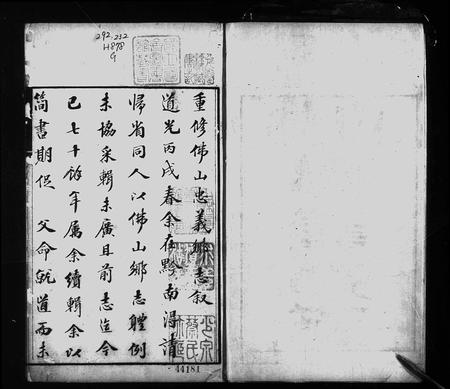 292.232
H878
9
重修佛山忠義鄉志叙
道光丙戌春余在黔南得請
歸省同人以佛山鄉志體例
未協采輯未廣且前志迄今
已七十餘年屬余續輯余以
簡書期促 父命就道而未
44181